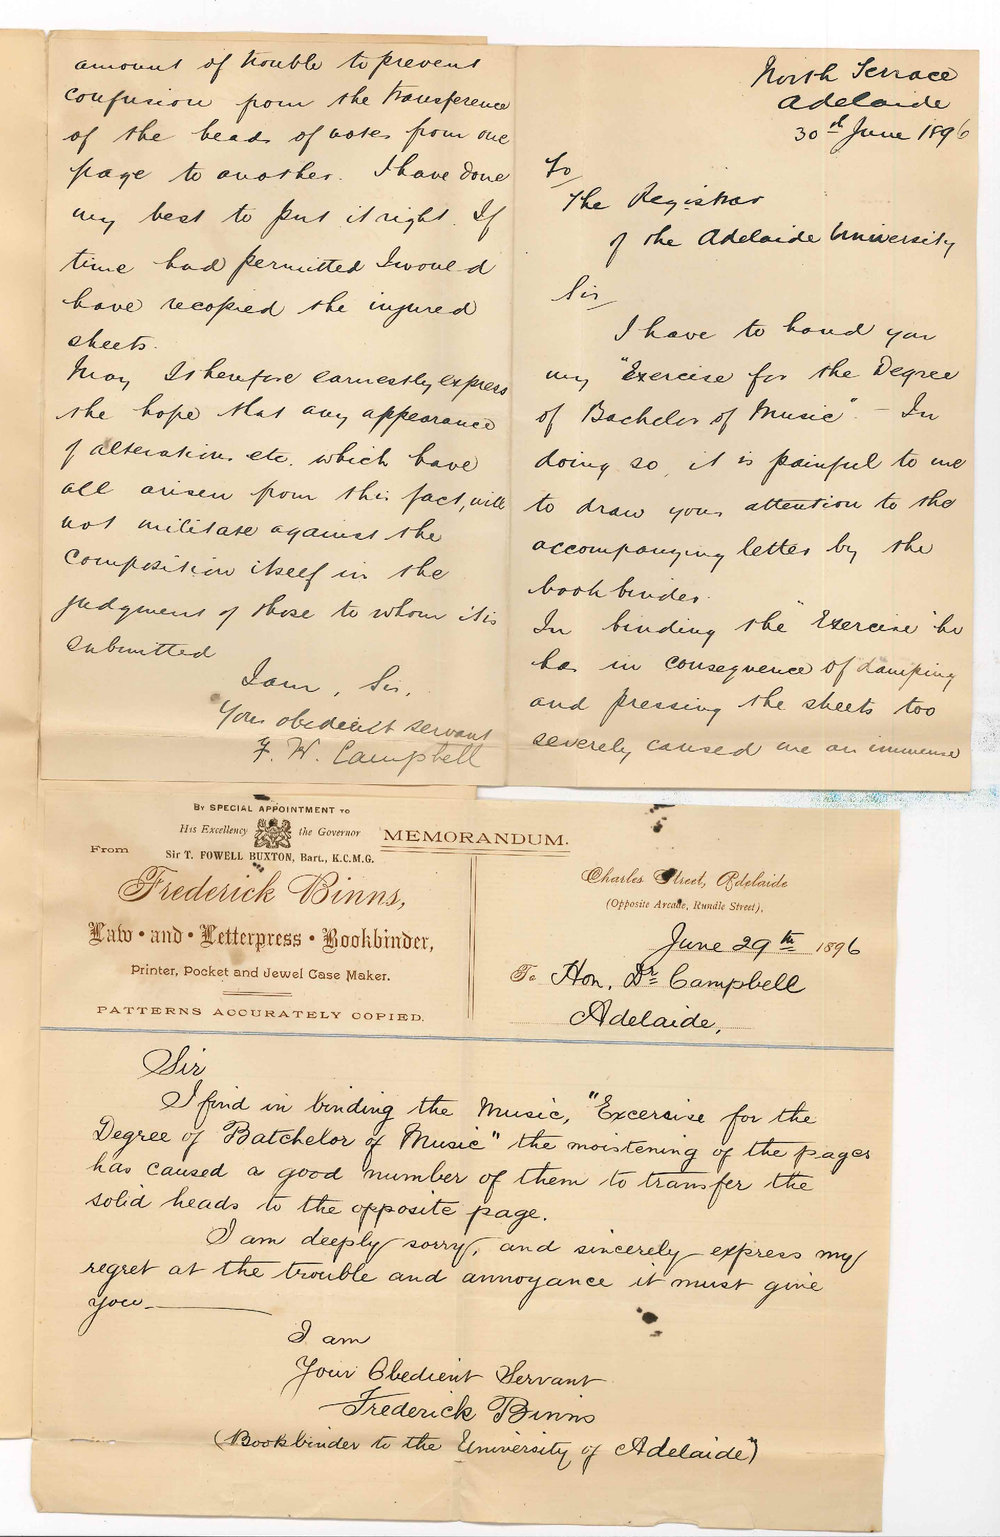 North Terrace
Adelaide
30th June 1896
To
The Registrar
of the Adelaide University
Sir
I have to hand you
my "Exercise for the Degree
of Bachelor of Music". - In
doing so, it is painful to me
to draw your attention to the
accompanying letter by the
bookbinder.
In binding the "Exercise" he
has in consequence of damping
and pressing the sheets too
severely caused me an immense
amount of trouble to prevent
confusion from the transference
of the heads of notes from one
page to another. I have done
my best to put it right. If
time had permitted I would
have recopied the injured
sheets.
May I therefore earnestly express
the hope that any appearance
of alterations etc. which have
all arisen from this fact, will
not militate against the
composition itself in the
judgment of those to whom it is
submitted
I am, Sir,
Your obedient servant
F. W. Campbell
By SPECIAL APPOINTMENT TO
His Excellency the Governor
Sir T. FOWELL BUXTON, Bart., K.C.M.G.
From
Frederick Binns,
Law • and • Letterpress • Bookbinder,
Printer, Pocket and Jewel Case Maker.
PATTERNS ACCURATELY COPIED.
MEMORANDUM.
Charles Street, Adelaide
(Opposite Arcade, Rundle Street),
June 29th 1896
To Hon. Dr. Campbell
Adelaide,
Sir
I find in binding the Music, "Excersise for the
Degree of Batchelor of Music" the moistening of the pages
has caused a good number of them to transfer the
solid heads to the opposite page.
I am deeply sorry, and sincerely express my
regret at the trouble and annoyance it must give
you.
I am
Your Obedient Servant
Frederick Binns
(Bookbinder to the University of Adelaide")